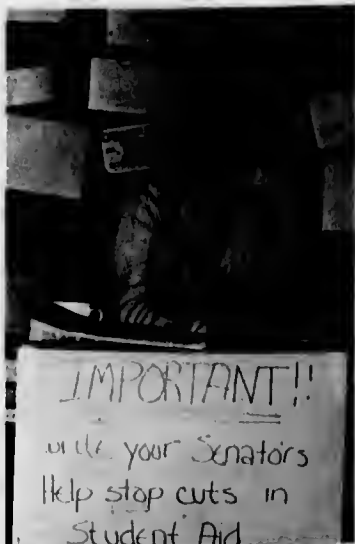 IMPORTANT!!
write your Senators
Help stop cuts in
Student Aid